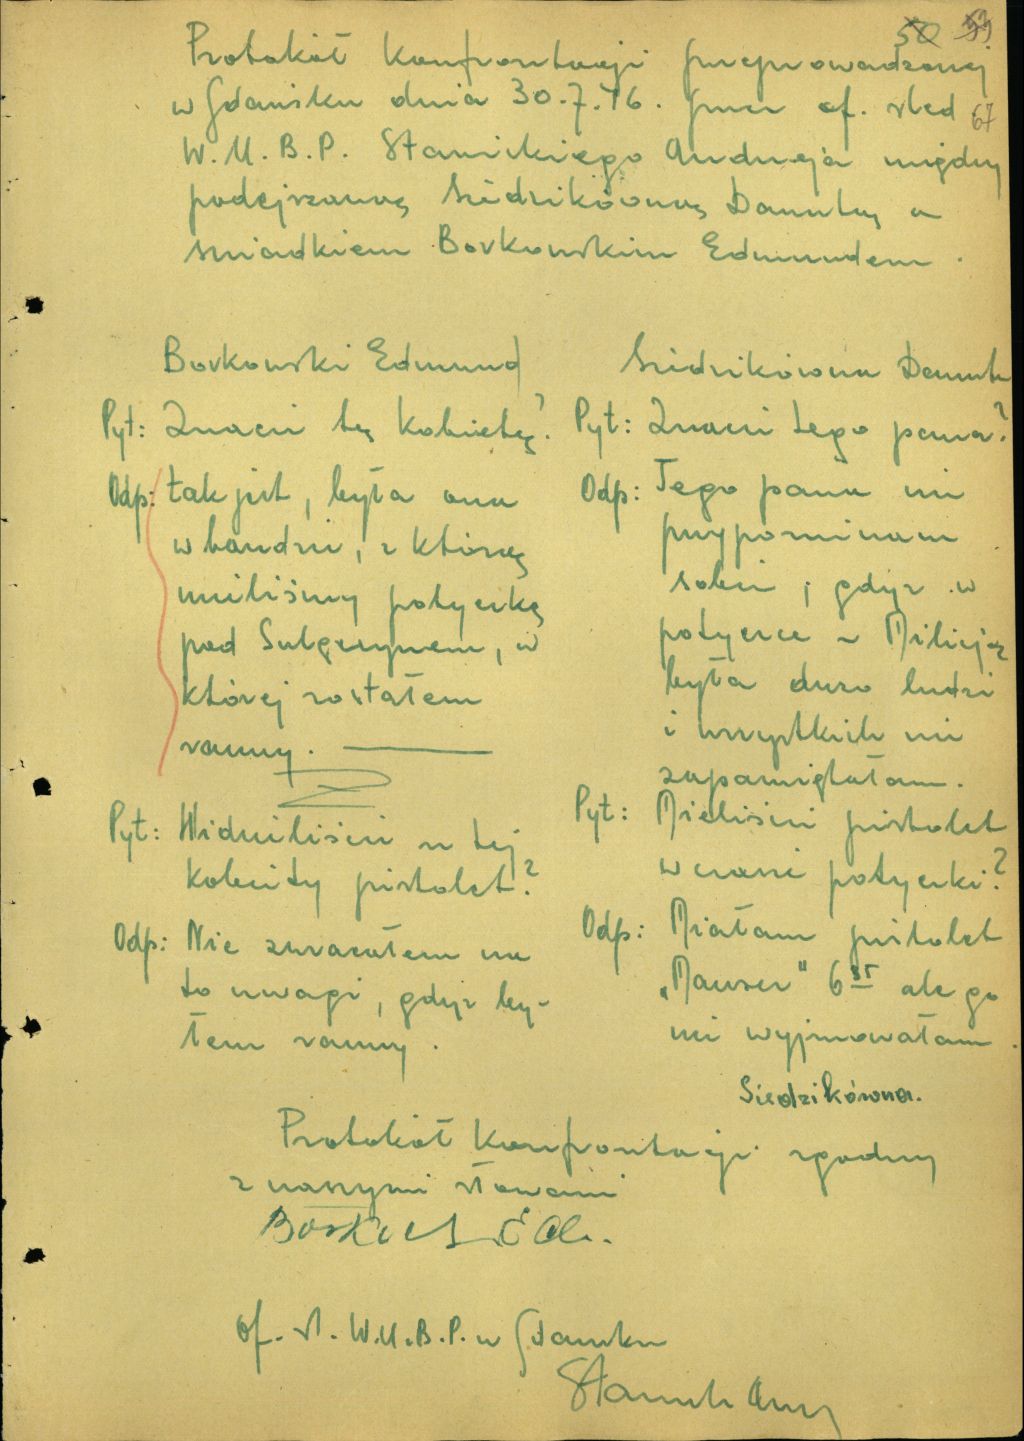 50 59
Protokół konfrontacji przeprowadzonej
w Gdańsku dnia 30.7.46. przez of. śled
67
W.U.B.P. Stawickiego Andrzeja między
podejrzaną Siedzikówną Danutą a
świadkiem Borkowskim Edmundem.
Borkowski Edmund
Pyt: Znacie tę kobietę?
Odp: tak jest, była ona
w bandzie, z którą
mieliśmy potyczkę
pod Tulicami, w
której zostałem
ranny.
Pyt: Widzieliście u tej
kobiety pistolet?
Odp: Nie zwracałem na
to uwagi, gdyż by-
łem ranny.
Siedzikówna Danuta
Pyt: Znacie tego pana?
Odp: Tego pana nie
przypominam
sobie, gdyż w
potyczce z Milicją
była dużo ludzi
i wszystkich nie
zapamiętałam.
Pyt: Mieliście pistolet
w czasie potyczki?
Odp: Miałam pistolet
„Mauser" 6 35 ale go
nie wyjmowałam.
Siedzikówna.
Protokół konfrontacji zgodny
z naszymi słowami
of. śl. W.U.B.P. w Gdańsku